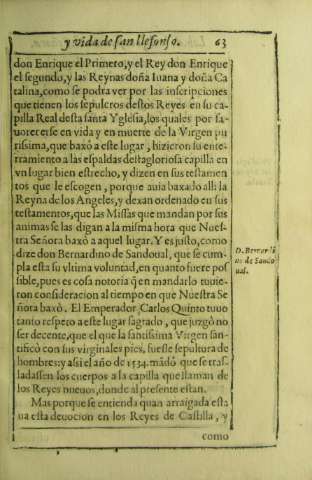 y vida de san Ilefonso. 63
don Enrique el Primero, y el Rey don Enrique
el segundo, y las Reynas doña Iuana y doña Ca
talina, como se podra ver por las inscripciones
que tienen los sepulcros destos Reyes en su ca
pilla Real desta santa Yglesia, los quales por fa
uorecerse en vida y en muerte de la Virgen pu
rissima, que baxò a este lugar, hizieron su ente-
rramiento a las espaldas desta gloriosa capilla en
vn lugar bien estrecho, y dizen en sus testamen
tos que le escogen, porque auia baxado alli la
Reyna de los Angeles, y dexan ordenado en sus
testamentos, que las Missas que mandan por sus
animas se las digan a la misma hora que Nues-
tra Señora baxó a aquel lugar. Y es justo, como
dize don Bernardino de Sandoual, que se cum-
pla esta su vltima voluntad, en quanto fuere pos
sible, pues es cosa notoria q̃ en mandarlo tuuie-
ron consideracion al tiempo en que Nuestra Se
ñora baxó. El Emperador Carlos Quinto tuuo
tanto respeto a este lugar sagrado, que juzgò no
ser decente, que el que la santissima Virgen san-
tificó con sus virginales pies, fuesse sepultura de
hombres: y assi el año de 1534. mãdó que se tras
ladassen los cuerpos a la capilla que llaman de
los Reyes nueuos, donde al presente estan.
Mas porque se entienda quan arraigada esta
ua esta deuocion en los Reyes de Castilla, y
como
D. Bernardi
no de Sando
ual.